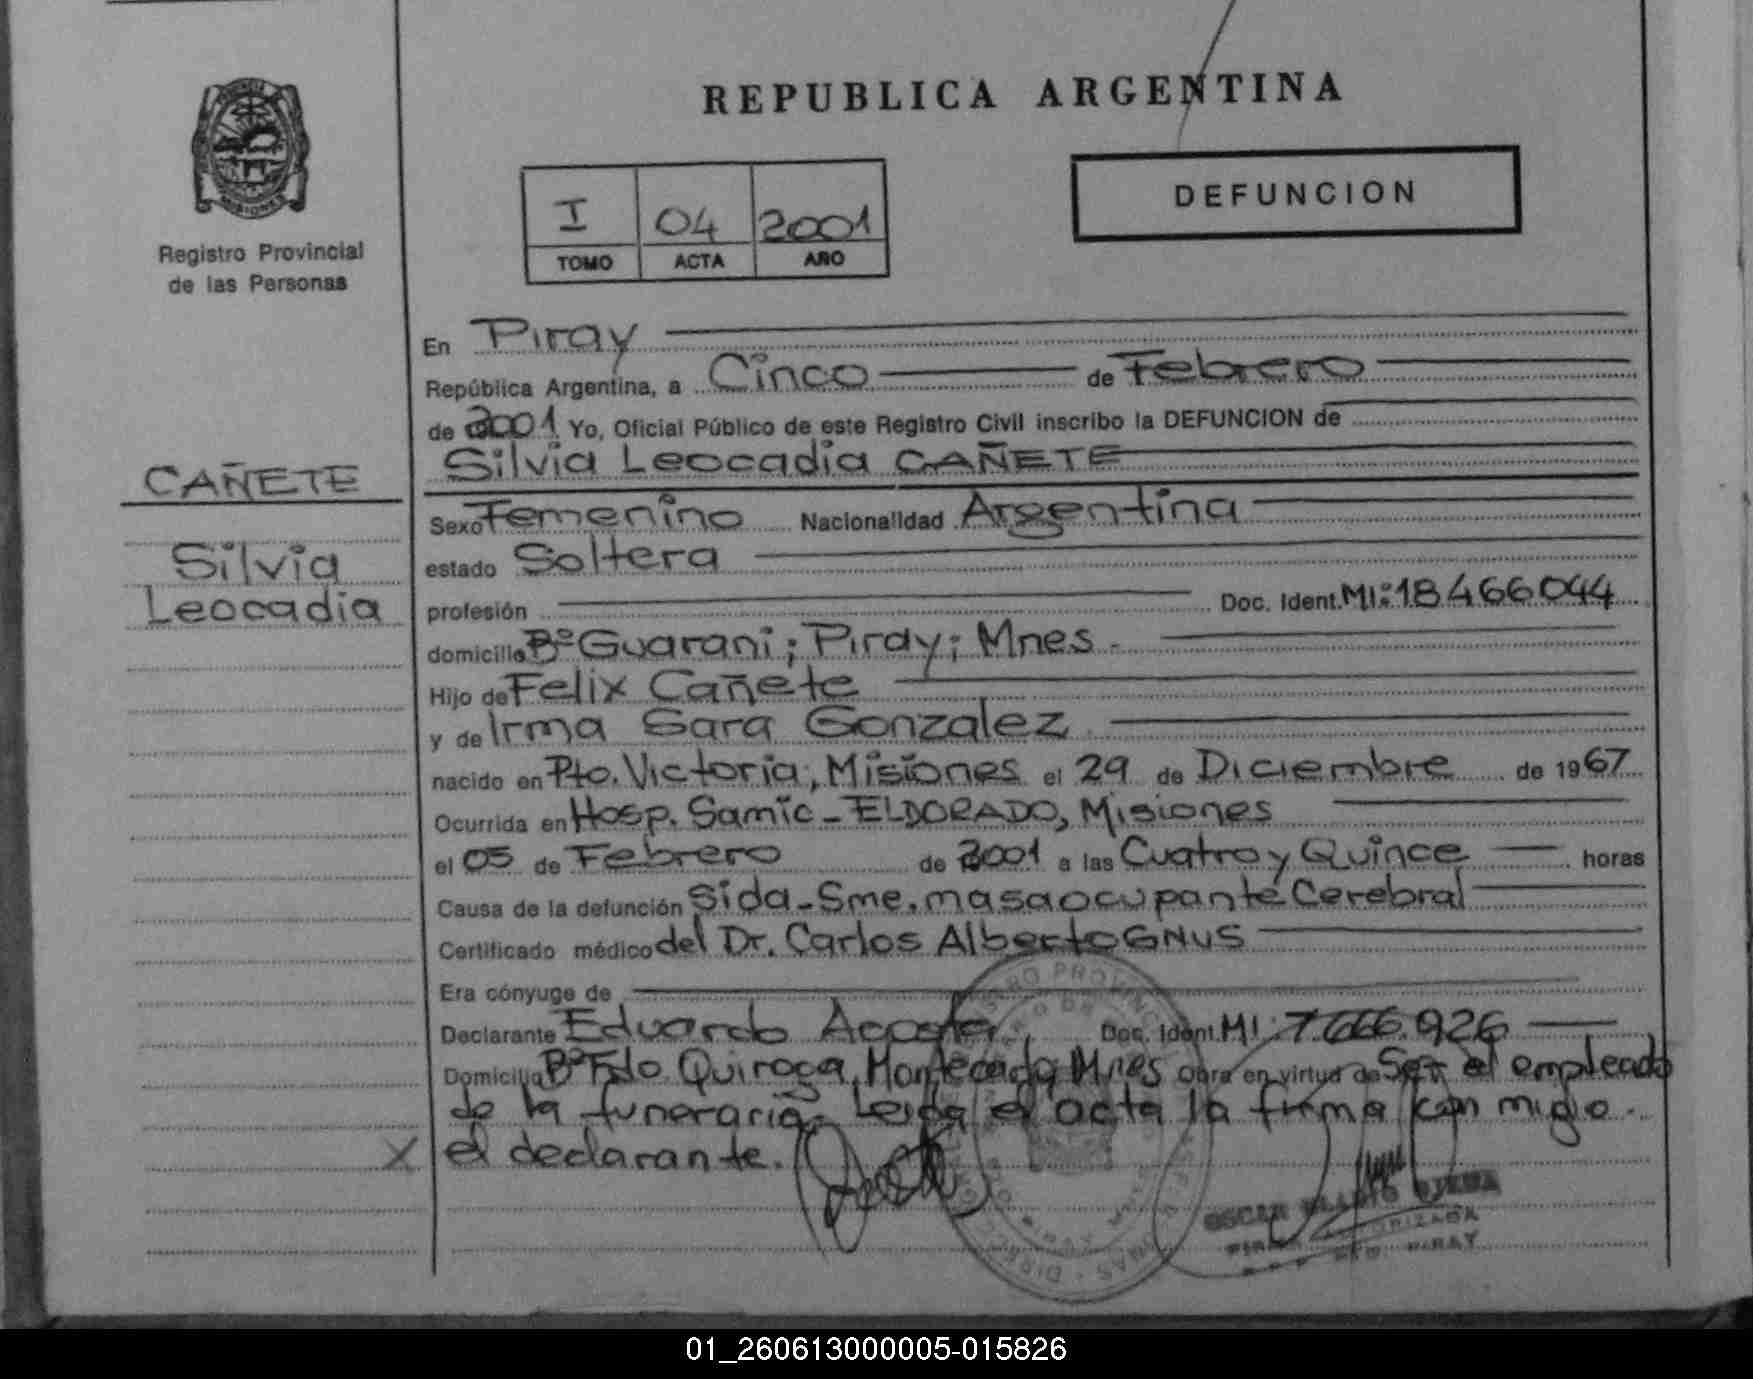 REPUBLICA ARGENTINA
MISIONES
Registro Provincial
de las Personas
I 04 2001
TOMO ACTA AÑO
DEFUNCION
En Piray
República Argentina, a Cinco de Febrero
de 2001 Yo, Oficial Público de este Registro Civil inscribo la DEFUNCION de
CAÑETE
Silvia Leocadia CAÑETE
Sexo Femenino Nacionalidad Argentina
Silvia
estado Soltera
Leocadia
profesión Doc. Ident. MI: 18466044
domicilio Bº Guarani; Piray; Mnes -
Hijo de Felix Cañete
y de Irma Sara Gonzalez
nacido en Pto. Victoria, Misiones el 29 de Diciembre de 1967
Ocurrida en Hosp. Samic - ELDORADO, Misiones
el 05 de Febrero de 2001 a las Cuatro y Quince horas
Causa de la defunción Sida - Sme. masa ocupante Cerebral
Certificado médico del Dr. Carlos Alberto GNUS
Era cónyuge de
Declarante Eduardo Acosta Doc. Ident. MI: 7.666.926
Domicilio Bº Fdo Quiroga, Montecarlo Mnes obra en virtud de Ser el empleado
de la funeraria. Leida el acta la firma con migo
X el declarante.
OSCAR ELADIO OJEDA
PIRAY
01_260613000005-015826